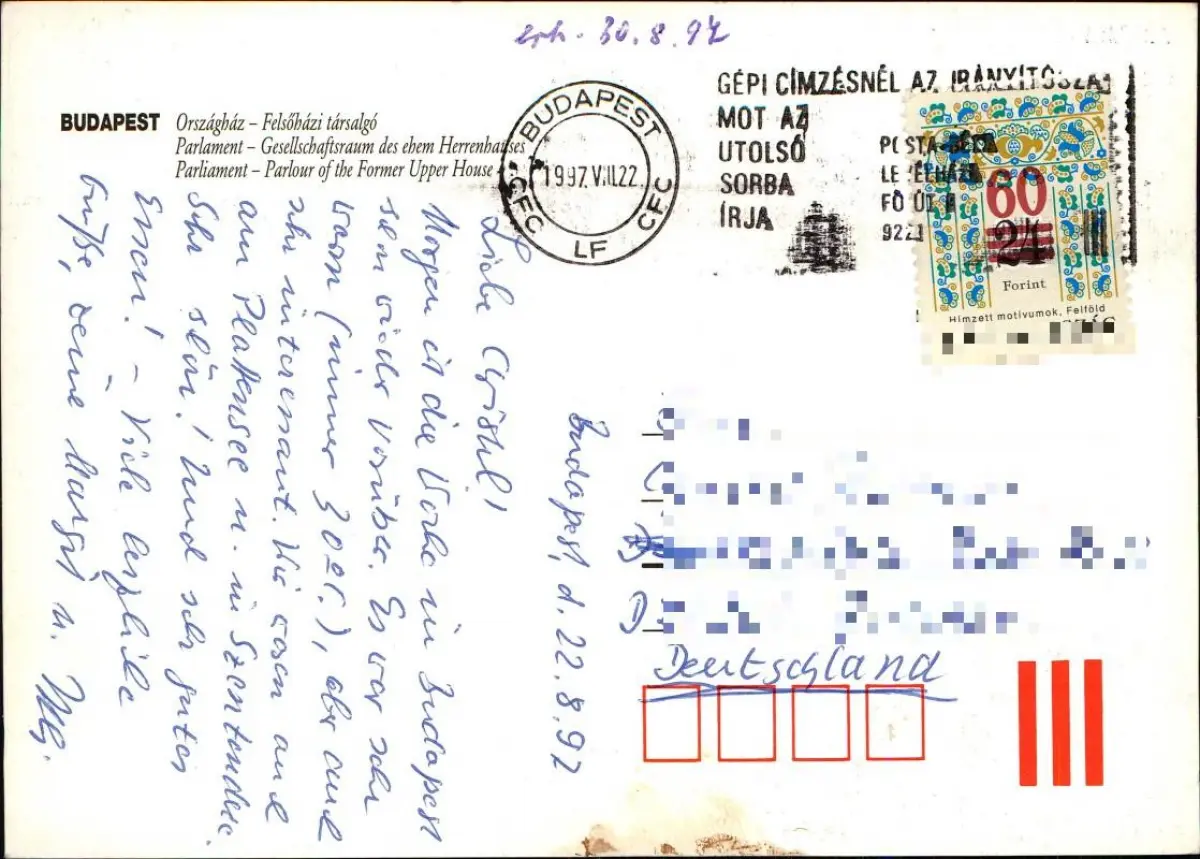 erh. 30.8.97
BUDAPEST Országház – Felsőházi társalgó
Parlament – Gesellschaftsraum des ehem Herrenhauses
Parliament – Parlour of the Former Upper House
BUDAPEST
1997.VIII.22.
CFC LF CFC
GÉPI CÍMZÉSNÉL AZ IRÁNYÍTÓSZÁ
MOT AZ
UTOLSÓ
SORBA
ÍRJA
FŐ ÚT
60
24
Forint
Hímzett motívumok, Felföld
Budapest, d. 22.8.97
Liebe
Morgen ist die Woche in Budapest
schon wieder vorüber. Es war sehr
warm (immer 30 Gr.), aber auch
sehr interessant. Wir waren auch
am Plattensee u. in Szentendre.
Sehr schön! Und sehr gutes
Essen! – Viele herzliche
Grüße, Deine Margit u.
D
Deutschland